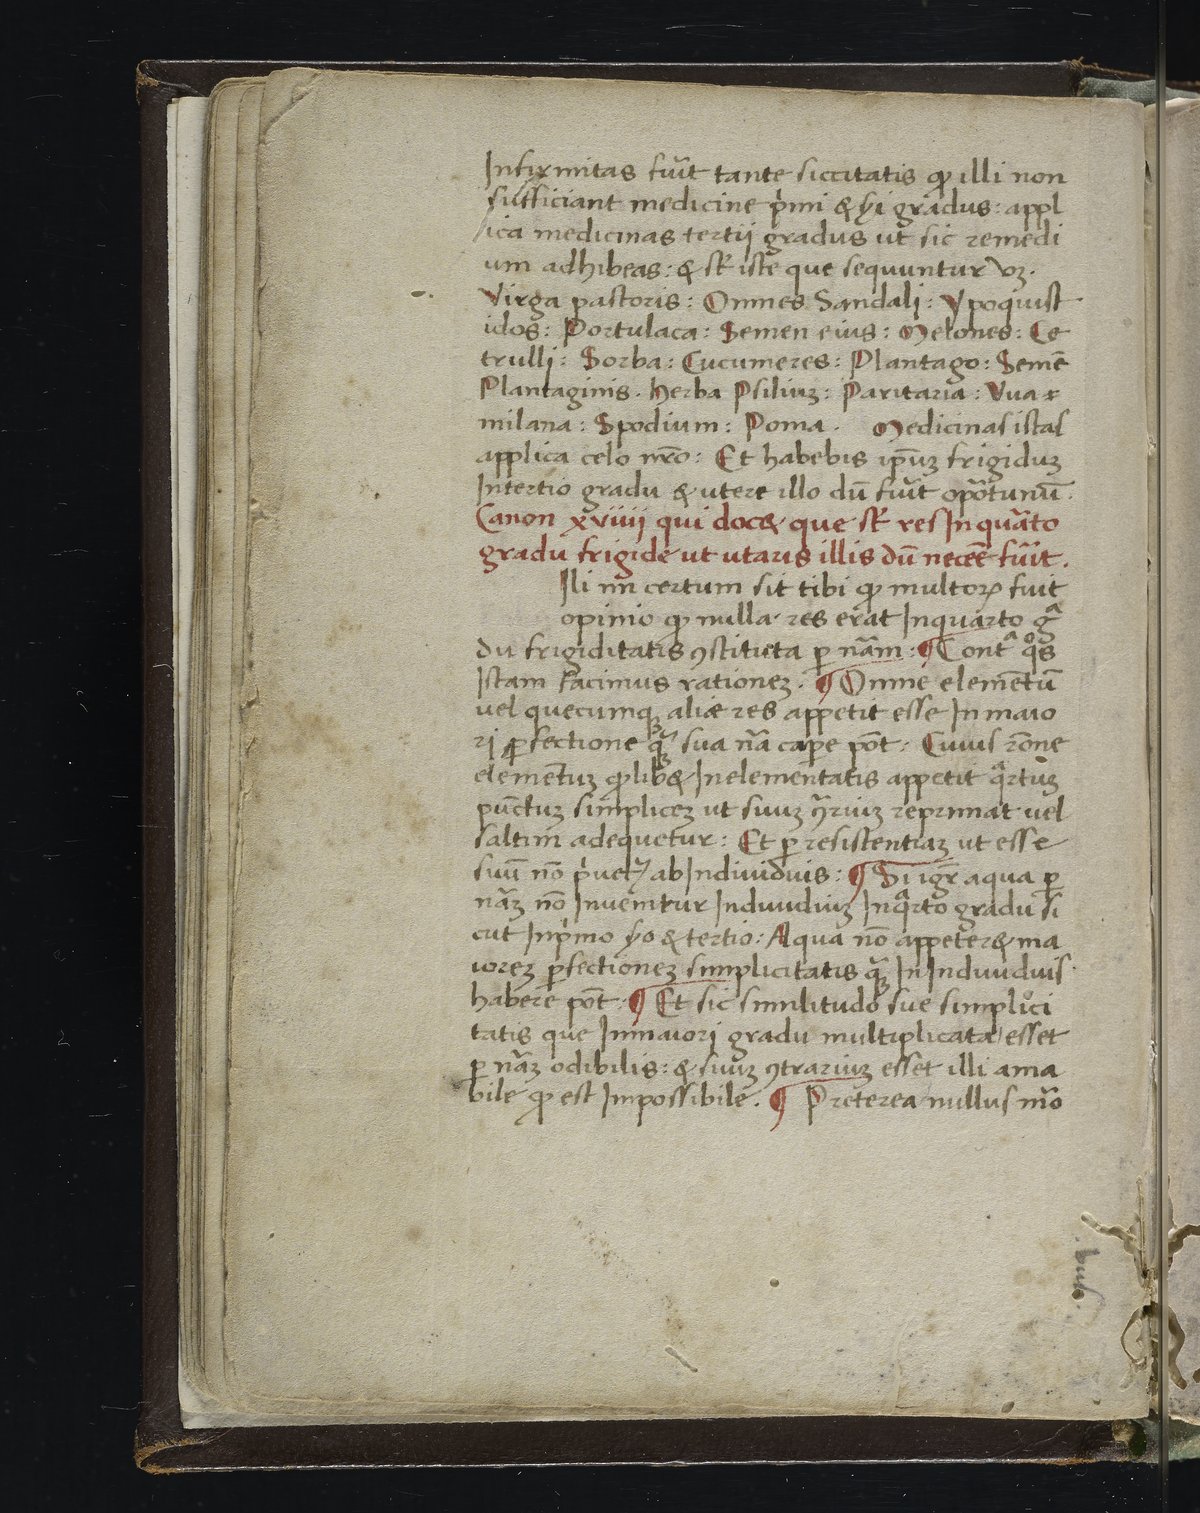 Infirmitas fuĩt tante siccitatis ꝙ illi non
sufficiant medicine p̃mi & ẏi gradus: appl
ica medicinas tertij gradus ut sic remedi
um adhibeas: & st̃ iste que sequuntur vꝫ.
Virga pastoris: Omnes Sandali: Ypoquist
idos: Portulaca: Semen eius: Melones: Ce
trulli: Sorba: Cucumeres: Plantago: Semẽ
Plantaginis. herba Psiliuꝫ: Paritaria: Vua
milana: Spodium: Poma. Medicinas istas
applica celo nr̃o: Et habebis ip̃uꝫ frigiduꝫ
Intertio gradu & utere illo dũ fuĩt opõtunũ.
Canon xviiij qui doc& que st̃ res Inquãto
gradu frigide ut utaris illis dũ necẽẽ fuĩt.
Ili mi certum sit tibi ꝙ multoꝝ fuit
opinio ꝙ nulla res erat Inquarto gr̃a
du frigiditatis ꝯstituta ꝑ nãm: ¶ Contᵃ qͦs
Istam facimus rationeꝫ. ¶ Omne elemẽtũ
uel quecumqꝫ aliæ res appetit esse Inmaio
ri ꝑfectione qᵃꝫ sua nã cape põt: Cuius rõne
elementuꝫ ꝙlib& Inelementatis appetit qᵃrtuꝫ
pũctuꝫ simpliceꝫ ut suuꝫ ꝯ̃riuꝫ reprimat uel
saltim adequetur: Et ꝑ resistentiaꝫ ut esse
suũ nõ p̃uet᷑ ab Indiuiduis: ¶ Si igr̃ aqua ꝑ
nãꝫ nõ Inuenitur Indiuiduiꝫ Inqᵃrto gradu si
cut Inp̃mo ẏo & tertio: Aqua nõ appeter& ma
ioreꝫ ꝑfectioneꝫ simplicitatis qᵃꝫ In Indiuiduis
habere põt. ¶ Et sic similitudo sue simplici
tatis que Inmaiori gradu multiplicata esset
ꝑ nãꝫ odibilis: & suuꝫ ꝯtrariuꝫ esset illi ama
bile ꝙ est Impossibile. ¶ Preterea nullus mõ